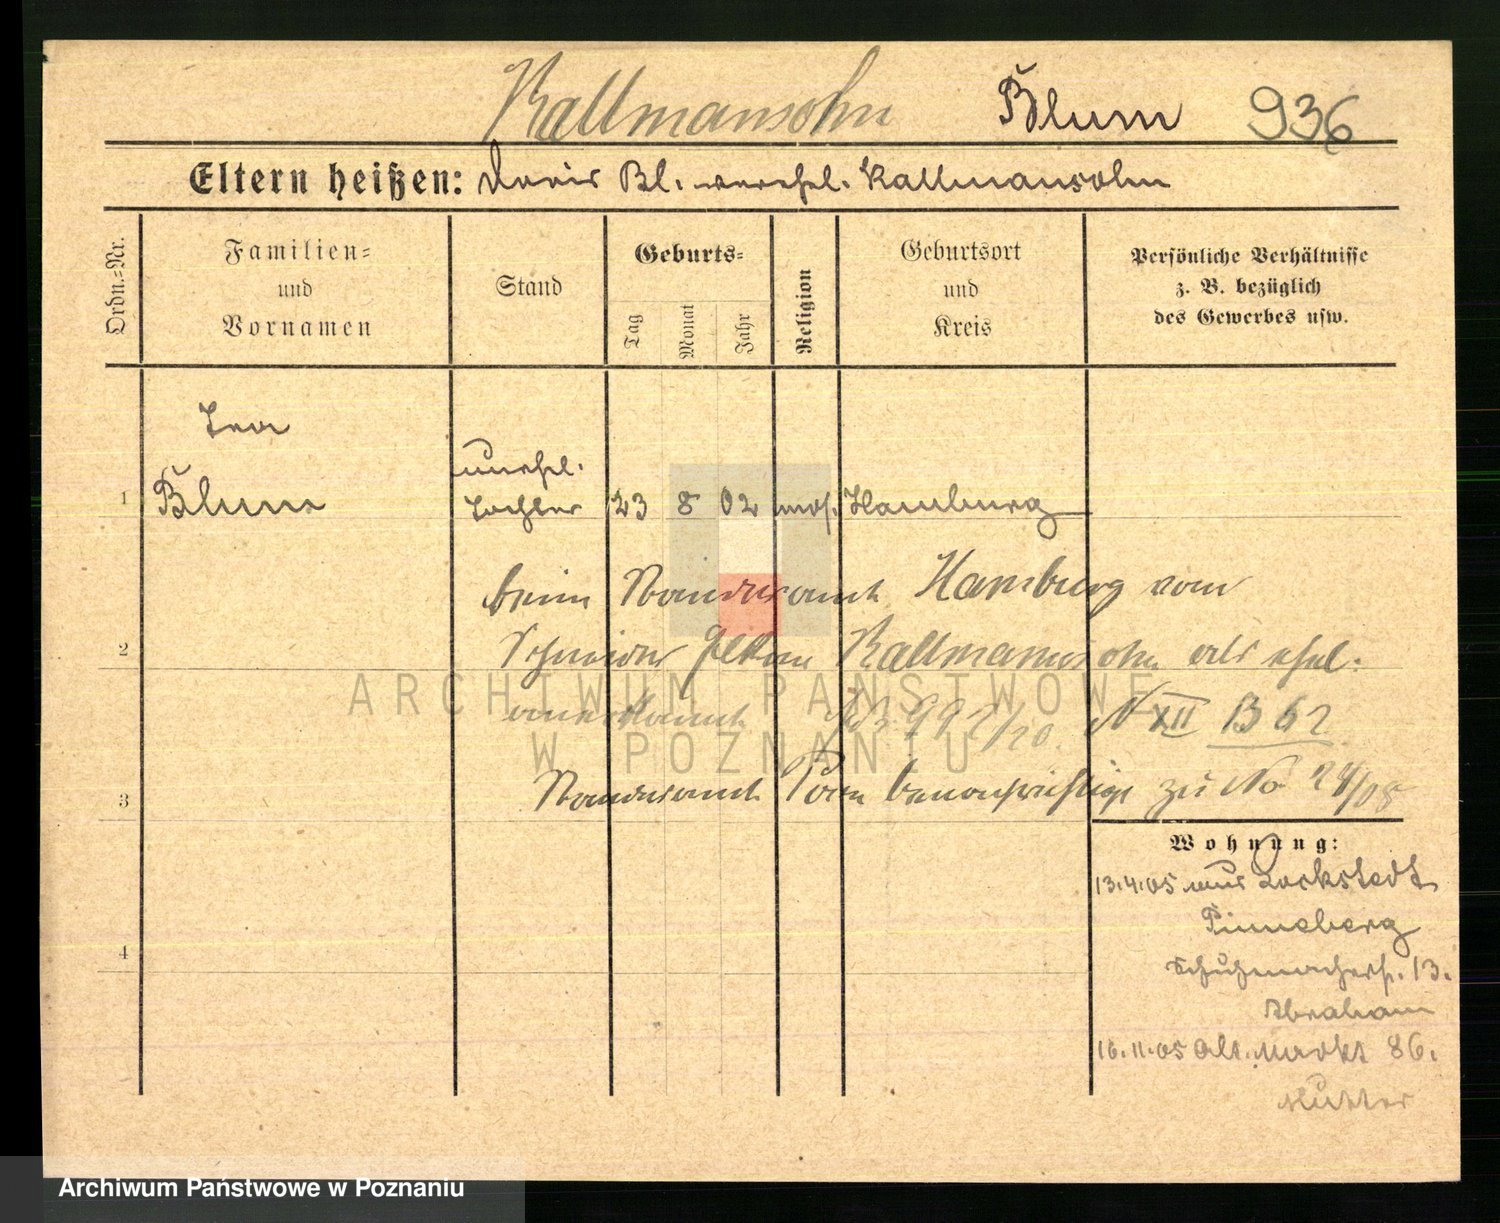 Kallmansohn Blum 936
Eltern heißen: Doris Bl. verehel. Kallmansohn
Ordn.-Nr.
Familien-
und
Vornamen
Stand
Geburts-
Tag
Monat
Jahr
Religion
Geburtsort
und
Kreis
Persönliche Verhältnisse
z. B. bezüglich
des Gewerbes usw.
unehel.
1 Blum Tochter 23 8 02 mos. Hamburg
beim Standesamt Hamburg vom
2 Schneider Kallmannsohn als ehel.
anerkannt 992/20. XII B 62
3 Standesamt Posen benachrichtigt zu No 24/05
Wohnung:
13.4.05 aus Lockstedt
Pinneberg
4 Schuhmacherst. 13.
Abraham
16.11.05 Alt. Markt 86.
Mutter
ARCHIWUM PAŃSTWOWE
W POZNANIU
Archiwum Państwowe w Poznaniu